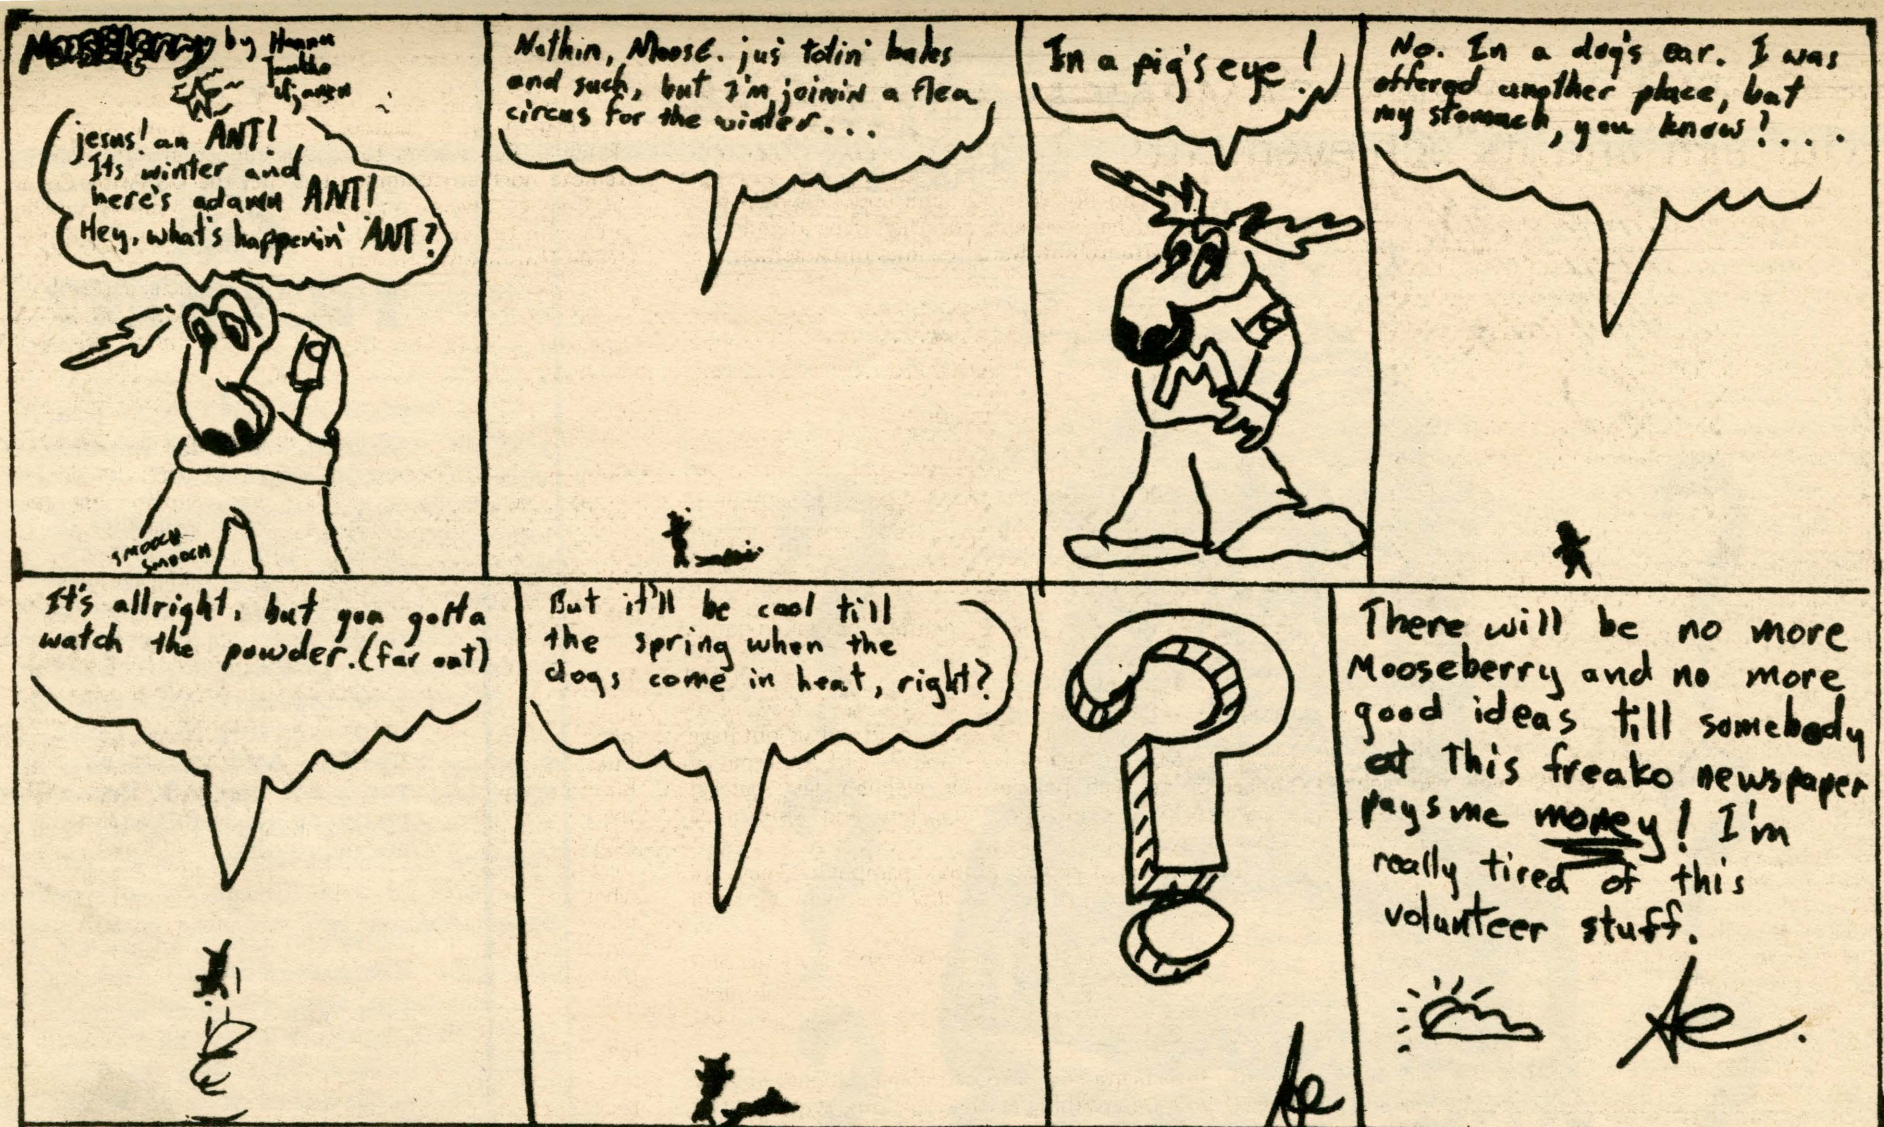 Mooseberry by Hannu
jesus! an ANT!
Its winter and
here's a damn ANT!
Hey, what's happenin' ANT?
SMOOCH
SMOOCH
Nothin, Moose. jus' totin' bales
and such, but I'm joinin a flea
circus for the winter...
In a pig's eye!
M
No. In a dog's ear. I was
offered another place, but
my stomach, you know?....
It's allright, but you gotta
watch the powder. (far out)
But it'll be cool till
the spring when the
dogs come in heat, right?
?
There will be no more
Mooseberry and no more
good ideas till somebody
at this freako newspaper
pays me money! I'm
really tired of this
volunteer stuff.